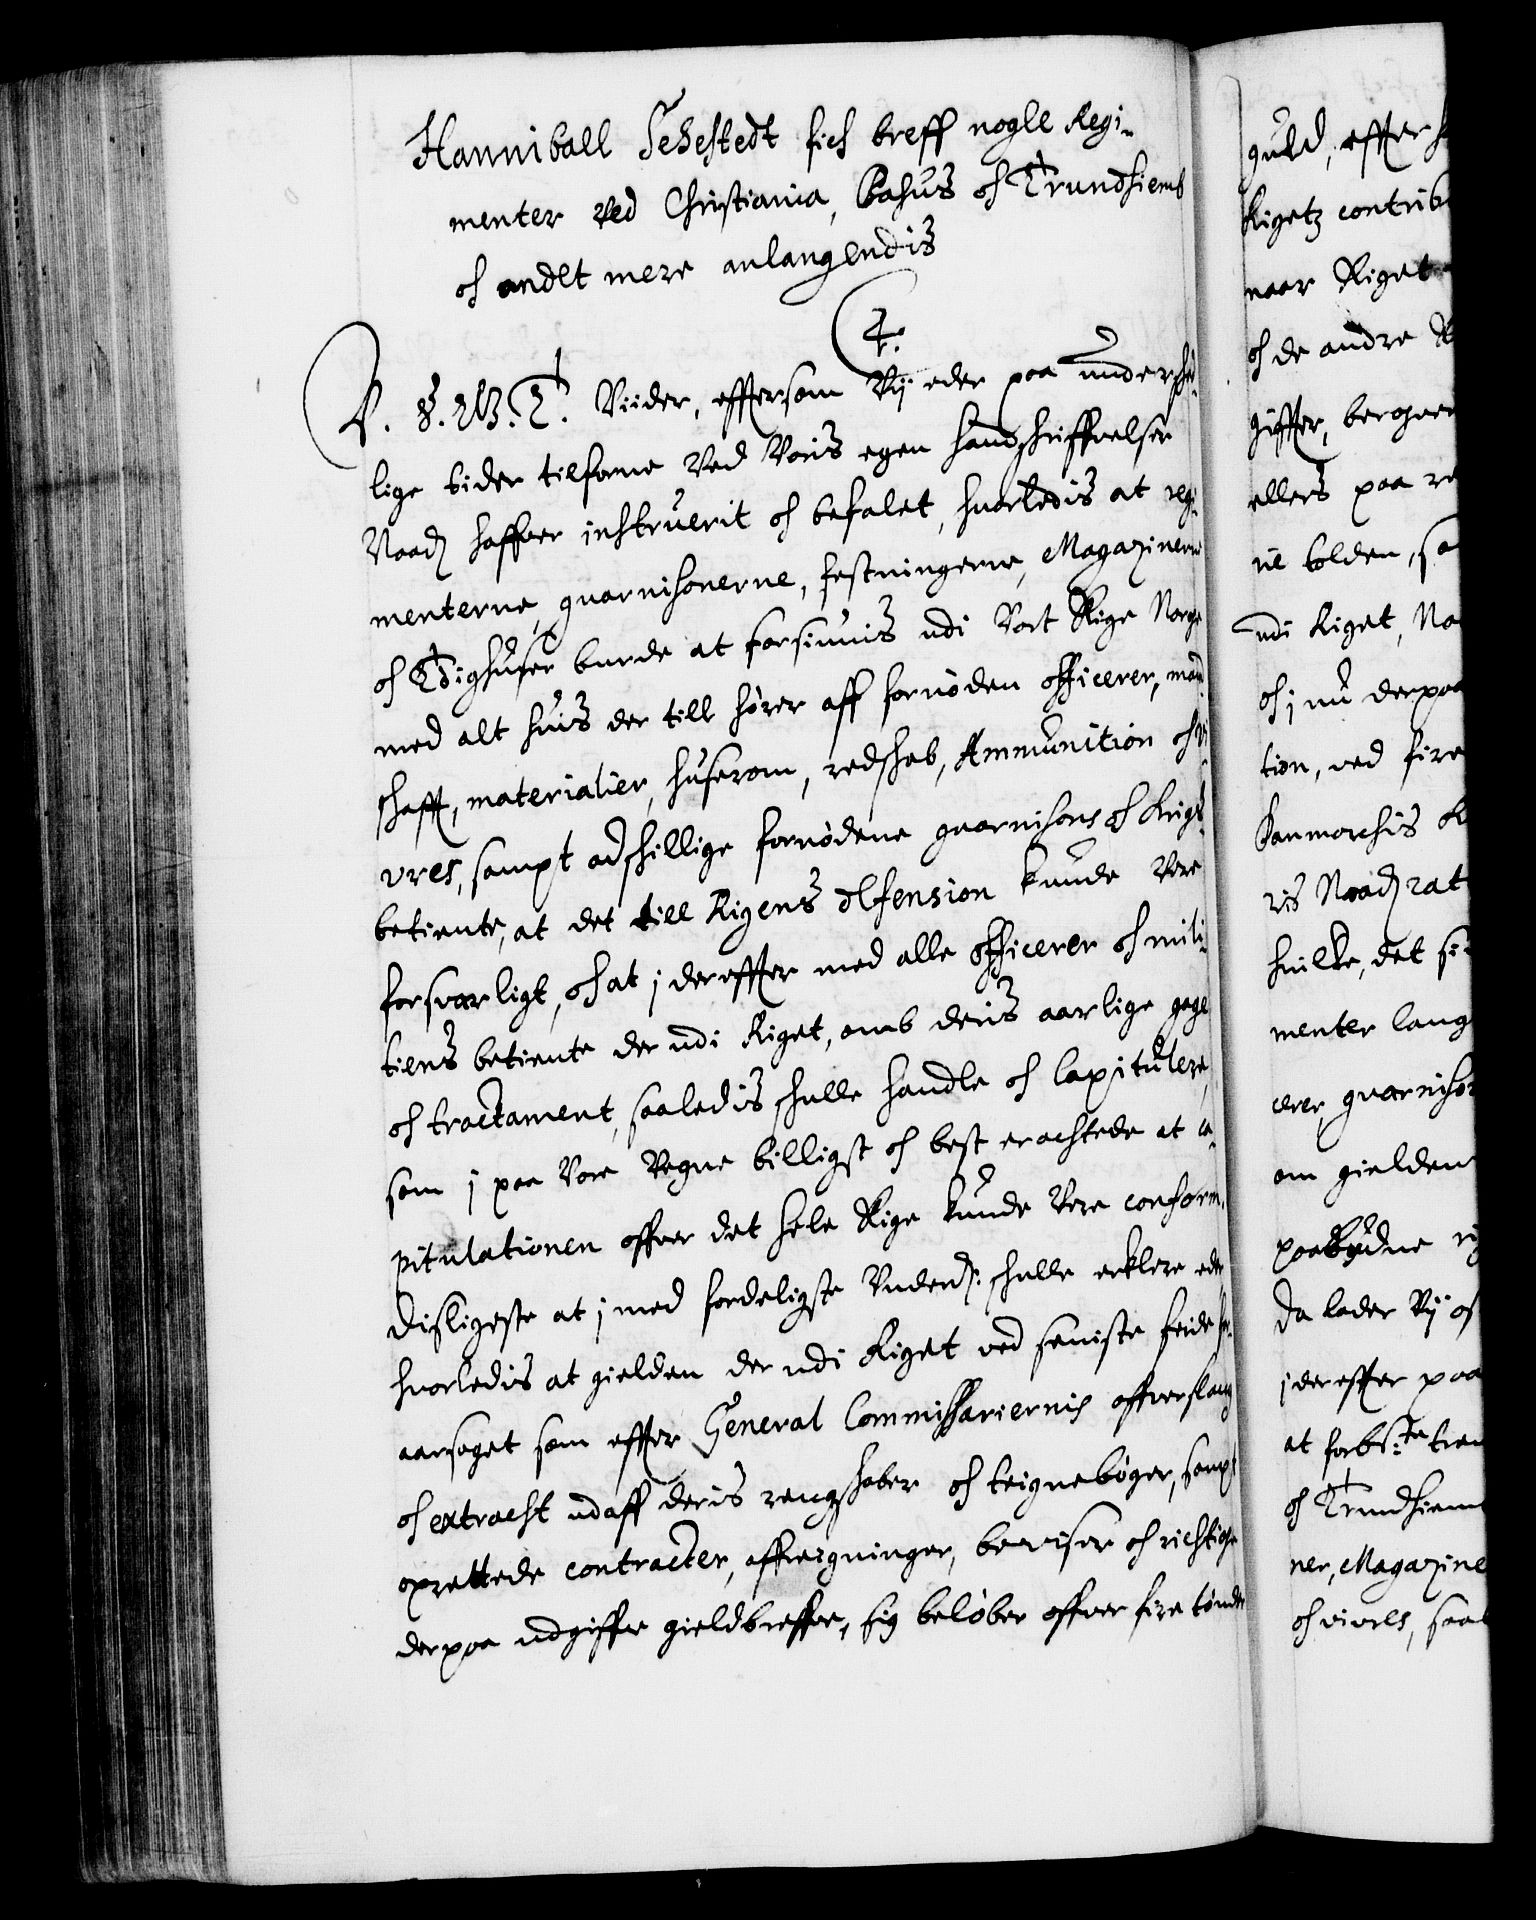 Hanniball Sehestedt fich breff nogle Regi-
menter ved Christiania, Bahus oc Trundhiemb
oc andet mere anlangendis
C. 4.
V. S. G. T. Viider, effterson Vij eder paa underschi-
lige tider tilforne Ved Voris egen handschriffvelser
Naadj haffver instruerit oc befalet, huorledis at regi-
menterne, guarnisonerne, festningerne, Magazinerne
oc Tÿghuser burde at forsiunis udi Vort Rige Norge
med alt huis der till hører aff fornøden officerer, mand-
schafft, materialier, huserom, redschab, Ammunition oc vi-
vres, sampt adschillige fornødene guarnisons oc krigs-
betiente, at det till Rigens defension kunde Vere
forsvarligt, oc at j dereffter med alle officerer oc mili-
tiens betiente der udi Riget, omb deris aarlige gage
oc tractament, saaledis schulle handle oc capitulere,
som j paa Vore Vegne billigst oc best erachtede at ca-
pitulationen offver det hele Rige kunde Vere conform,
disligeste at j med forderligste Underd: schulle erklere eder
huorledis at gielden der udi Riget ved seniste feide for-
aarsaget som effter General Commissariernis offverslaug
oc extracht udaff deris rengschaber oc teignebøger, sampt
oprettede contracter, affregninger, beviser oc richtige
derpaa udgiffne gieldbreffve, sig beløber offver fire tønder
guld, effter
Rigetz contrib
naar Riget
oc de andre
giffter, berogver
ellers paa
ne tolden, sa
udi Riget, No
oc j nu derpaa
tion, ved fire
Danmarchis R
ris Naadj rat
huilke, det si
menter lang
cerer, guarnison
om gielden
paabudne
Da lader Vij os
j dereffter paa
at forbs:te tre
oc Trundhiem
ner, Magazine
oc vivres, saa